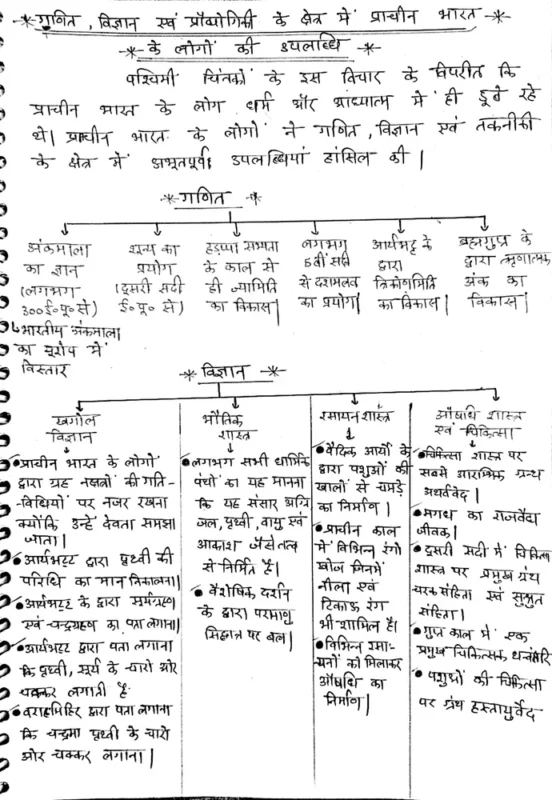 गणित, विज्ञान एवं प्रौद्योगिकी के क्षेत्र में प्राचीन भारत
के लोगों की उपलब्धि
पश्चिमी चिंतकों के इस विचार के विपरीत कि
प्राचीन भारत के लोग धर्म और आध्यात्म में ही डूबे रहे
थे। प्राचीन भारत के लोगों ने गणित, विज्ञान एवं तकनीकी
के क्षेत्र में अभूतपूर्व उपलब्धियां हांसिल की।
गणित
अंकमाला
का ज्ञान
(लगभग
300 ई०पू० से)
भारतीय अंकमाला
का यूरोप में
विस्तार
शून्य का
प्रयोग
(दूसरी सदी
ई० पू० से)
हड़प्पा सभ्यता
के काल से
ही ज्यामिति
का विकास।
लगभग
5वीं सदी
से दशमलव
का प्रयोग।
आर्यभट्ट के
द्वारा
त्रिकोणमिति
का विकास।
ब्रह्मगुप्त के
द्वारा ऋणात्मक
अंक का
विकास।
विज्ञान
खगोल
विज्ञान
प्राचीन भारत के लोगों
द्वारा ग्रह नक्षत्रों की गति-
-विधियों पर नजर रखना
क्योंकि उन्हें देवता समझा
जाता।
आर्यभट्ट द्वारा पृथ्वी की
परिधि का मान निकालना।
आर्यभट्ट के द्वारा सूर्यग्रहण
एवं चन्द्रग्रहण का पता लगाना।
आर्यभट्ट द्वारा पता लगाना
कि पृथ्वी, सूर्य के चारो ओर
चक्कर लगाती है
वराहमिहिर द्वारा पता लगाना
कि चन्द्रमा पृथ्वी के चारो
ओर चक्कर लगाना।
भौतिक
शास्त्र
लगभग सभी धार्मिक
पंथों का यह मानना
कि यह संसार अग्नि
जल, पृथ्वी, वायु एवं
आकाश जैसे तत्व
से निर्मित है।
वैशेषिक दर्शन
के द्वारा परमाणु
सिद्धान्त पर बल।
रसायन शास्त्र
वैदिक आर्यों के
द्वारा पशुओं की
खालों से चमड़े
का निर्माण।
प्राचीन काल
में विभिन्न रंगो
खोज जिनमें
नीला एवं
टिकाऊ रंग
भी शामिल है।
विभिन्न रसा-
यनों को मिलाकर
औषधि का
निर्माण।
औषधि शास्त्र
एवं चिकित्सा
चिकित्सा शास्त्र पर
सबसे आरंभिक ग्रन्थ
अथर्ववेद।
मगध का राजवैद्य
जीवक।
दूसरी सदी में चिकित्सा
शास्त्र पर प्रमुख ग्रंथ
चरक संहिता एवं सुश्रुत
संहिता।
गुप्त काल में एक
प्रमुख चिकित्सक धन्वंतरि
पशुओं की चिकित्सा
पर ग्रंथ हस्तायुर्वेद